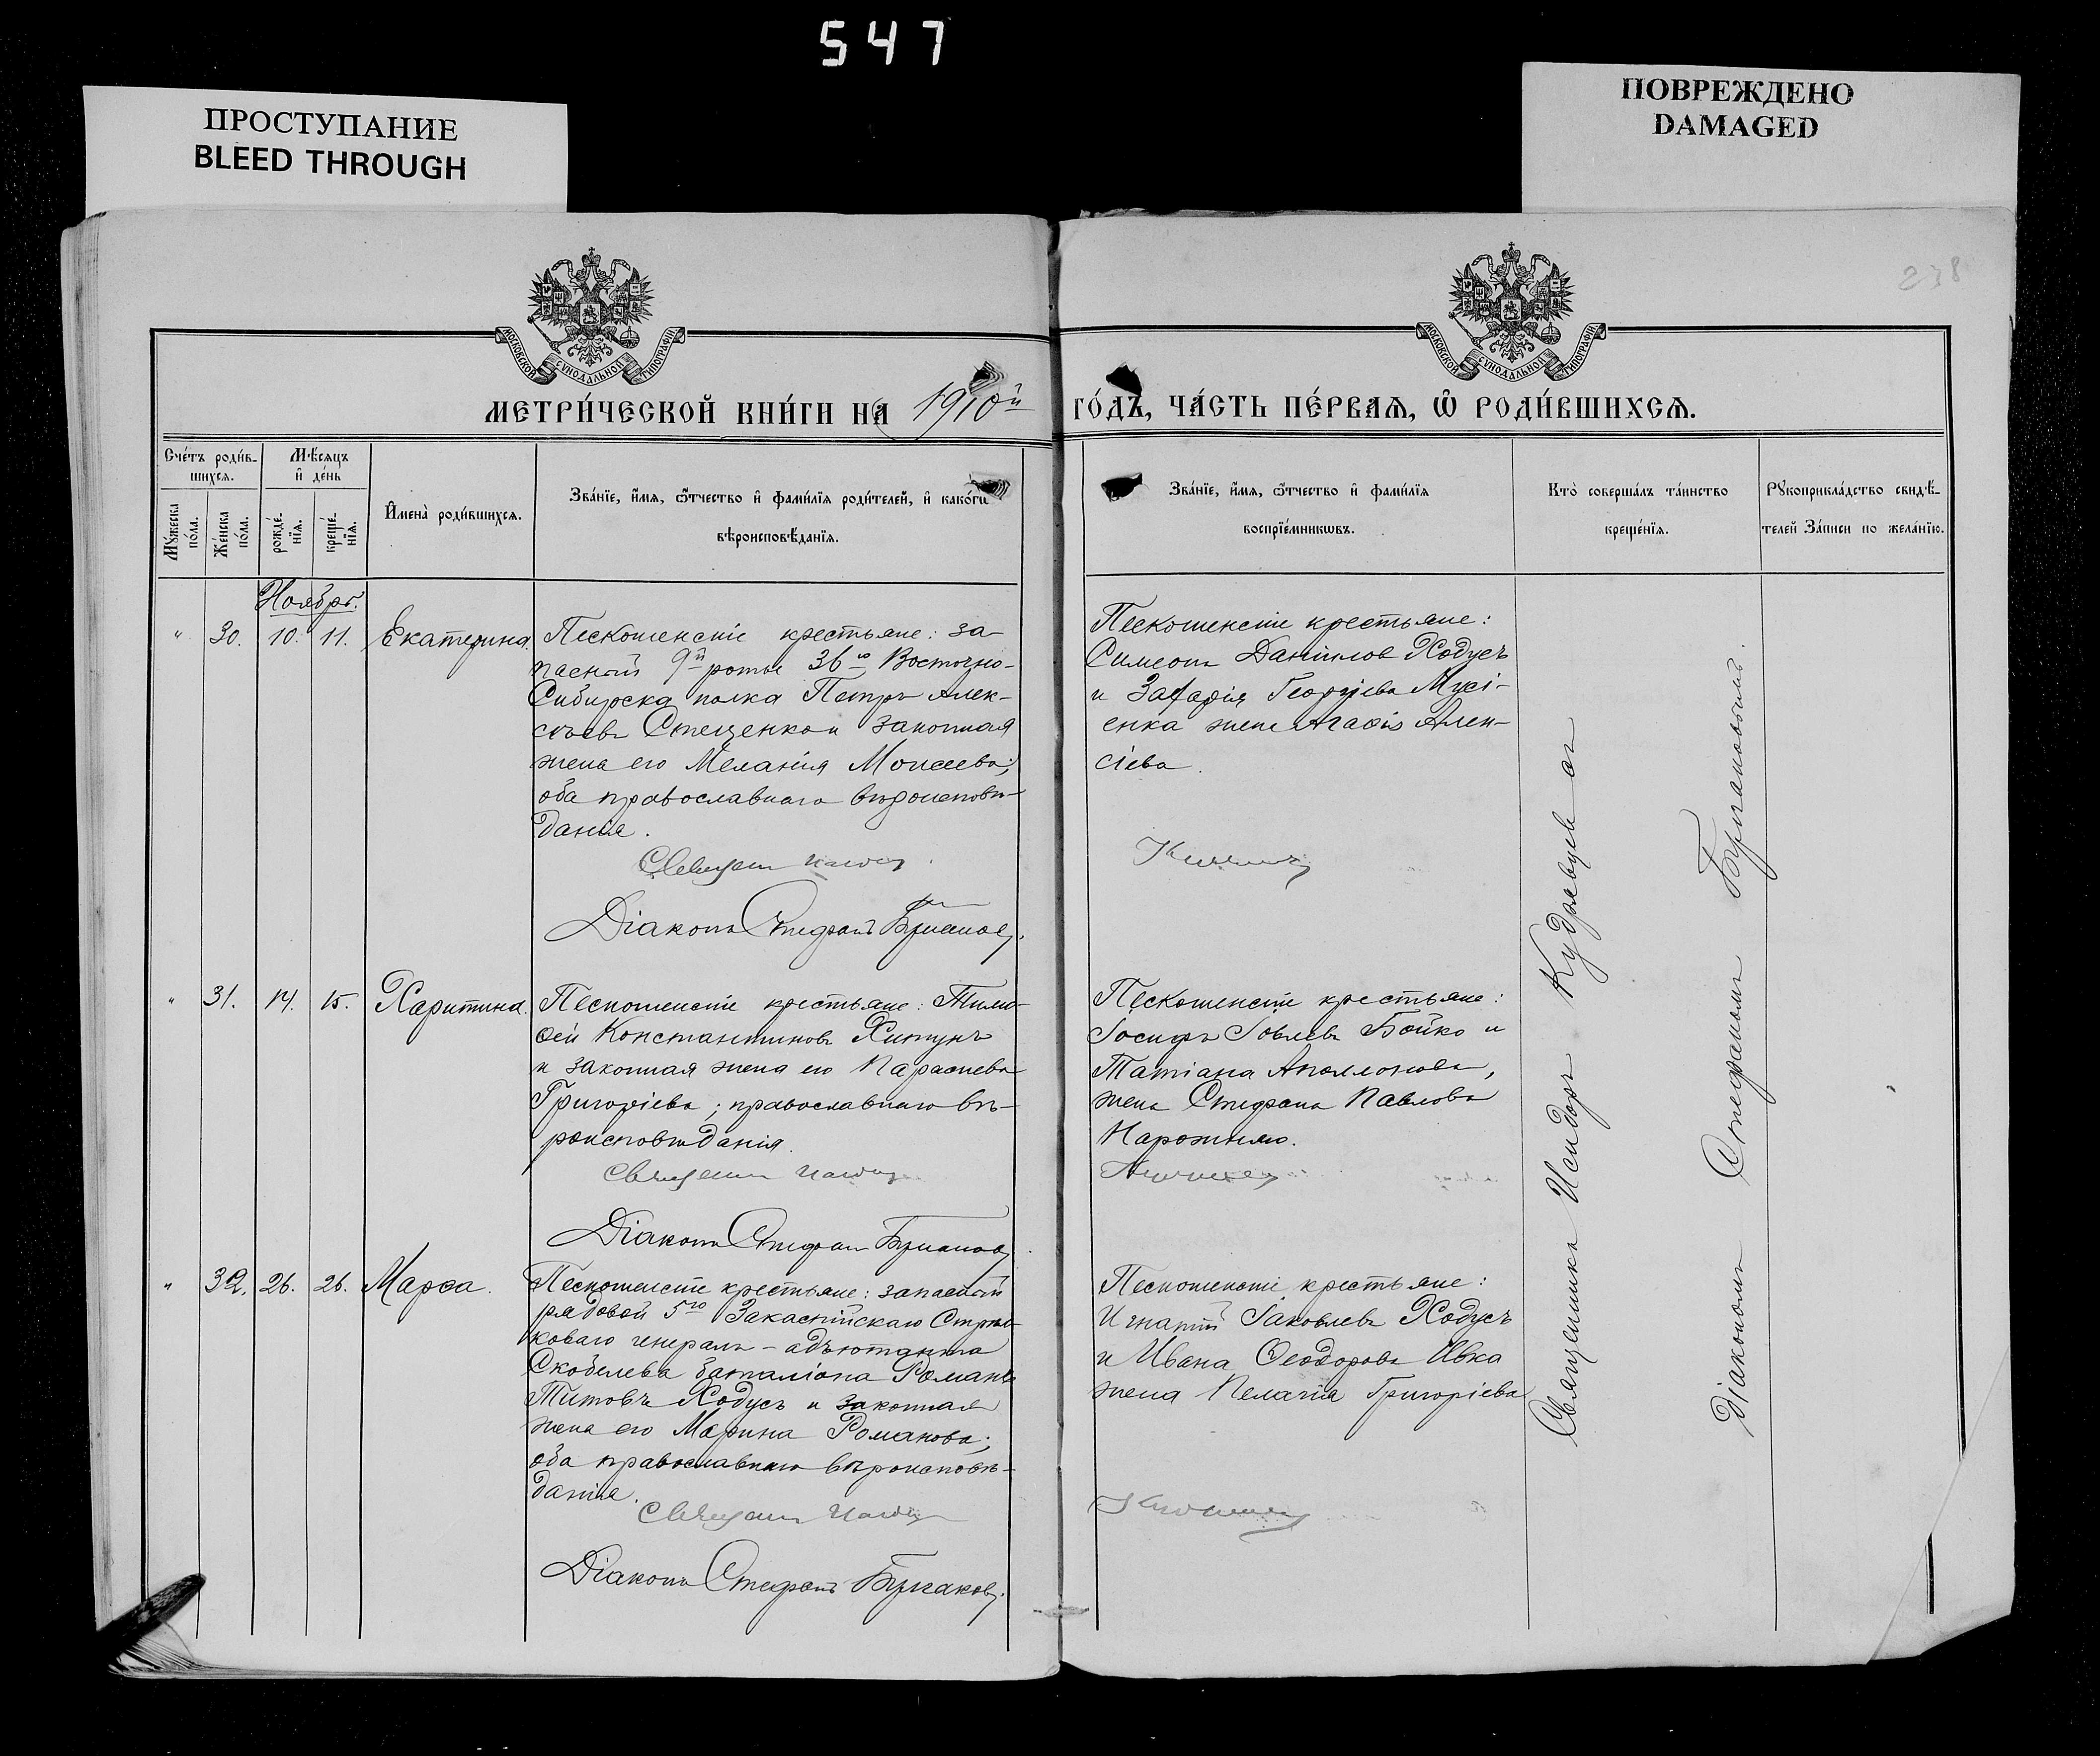 547
ПРОСТУПАНИЕ
BLEED THROUGH
ПОВРЕЖДЕНО
DAMAGED
238
МОСКОВСКОЙ СѴНОДАЛЬНОЙ ТИПОГРАФІИ
МОСКОВСКОЙ СѴНОДАЛЬНОЙ ТИПОГРАФІИ
МЕТРИ́ЧЕСКОЙ КНИ́ГИ НА 1910й
ГО́ДЪ, ЧА́СТЬ ПЕ́РВАЯ, Ѽ РОДИ́ВШИХСЯ.
Сче́тъ роди́в-
шихся.
Мѣ́сяцъ
и҆ де́нь
Мꙋ́жеска
по́ла.
Же́нска
по́ла.
рожде́-
нїя.
креще́-
нїя.
И҆мена̀ роди́вшихся.
Зва́нїе, и҆́мя, ѻ҆́тчество и҆ фами́лїя роди́телей, и҆ како́гѡ
вѣроисповѣ́данїя.
Зва́нїе, и҆́мя, ѻ҆́тчество и҆ фами́лїя
воспрїе́мникѡвъ.
Кто̀ соверша́лъ та́инство
креще́нїя.
Рꙋкоприкла́дство свидѣ́-
телей За́писи по жела́нїю.
Ноябрь.
" 30. 10. 11. Екатерина.
Пескошенскіе крестьяне: за-
пасный 9й роты 36го Восточно-
Сибирска полка Петръ Алек-
сѣевъ Стеценко и законная
жена его Меланія Моисеева;
оба православнаго вѣроисповѣ-
данія.
Діаконъ Стефанъ
Пескошенскіе крестьяне:
Симеонъ Даніиловъ Ходусъ
и Захарія Георгіева Мусі-
енка жена Агаѳія Алек-
сіева.
" 31. 14. 15. Харитина.
Пескошенскіе крестьяне: Тимо-
ѳей Константиновъ Хитунъ
и законная жена его Параскева
Григоріева; православнаго вѣ-
роисповѣданія.
Діаконъ Стефанъ
Пескошенскіе крестьяне:
Іосифъ Іовлевъ Бойко и
Татіана Аполлонова,
жена Стефана Павлова
Нарожняго.
" 32. 26. 26. Марѳа.
Пескошенскіе крестьяне: запасный
рядовой 5го Закаспійскаго Стрѣл-
коваго генералъ-адъютанта
Скобелева баталіона Романъ
Титовъ Ходусъ и законная
жена его Марина Романова;
оба православнаго вѣроисповѣ-
данія.
Діаконъ Стефанъ
Пескошенскіе крестьяне:
Игнатій Іаковлевъ Ходусъ
и Ивана Ѳеодорова Ивка
жена Пелагія Григоріева
Священникъ Исидоръ Кудрявцевъ съ
Діакономъ Стефаномъ